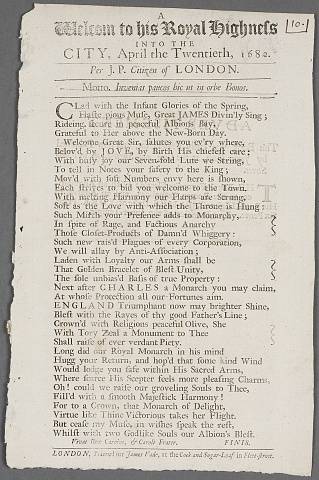 A
Welcom to his Royal Highness
[10.]
INTO THE
CITY, April the Twentieth, 1682.
Per J. P. Citizen of LONDON.
Motto. Invenias paucos hic ut in orbe Bonos.
CLad with the Infant Glories of the Spring,
Haste pious Muse, Great JAMES Divin'ly Sing;
Rideing secure in peaceful Albions Bay,
Grateful to Her above the New-Born Day.
Welcome Great Sir, salutes you ev'ry where,
Belov'd by JOVE, by Birth His chiefest care:
With busy joy our Seven-fold Lute we String,
To tell in Notes your safety to the King;
Mov'd with soft Numbers envy here is shown,
Each strives to bid you welcome to the Town.
With melting Harmony our Harps are Strung,
Soft as the Love with which the Throne is Hung:
Such Mirth your Presence adds to Monarchy,
In spite of Rage, and Factious Anarchy
Those Closet-Products of Damn'd Whiggery:
Such new rais'd Plagues of every Corporation,
We will allay by Anti-Association;
Laden with Loyalty our Arms shall be
That Golden Bracelet of Blest Unity,
The sole unbias'd Basis of true Property:
Next after CHARLES a Monarch you may claim,
At whose Protection all our Fortunes aim.
ENGLAND Triumphant now may brighter Shine,
Blest with the Rayes of thy good Father's Line;
Crown'd with Religious peaceful Olive, She
With Tory Zeal a Monument to Thee
Shall raise of ever verdant Piety.
Long did our Royal Monarch in his mind
Hugg your Return, and hop'd that some kind Wind
Would lodge you safe within His Sacred Arms,
Where scarce His Scepter feels more pleasing Charms,
Oh! could we raise our groveling Souls to Thee,
Fill'd with a smooth Majestick Harmony!
For to a Crown, that Monarch of Delight,
Virtue like Thine Victorious takes her Flight.
But cease my Muse, in wishes speak the rest,
Whilst with two Godlike Souls our Albion's Blest.
Vivat Rex Carolus, & Caroli Frater. FINIS.
LONDON, Printed for James Vade, at the Cock and Sugar-Loaf in Fleet-street.